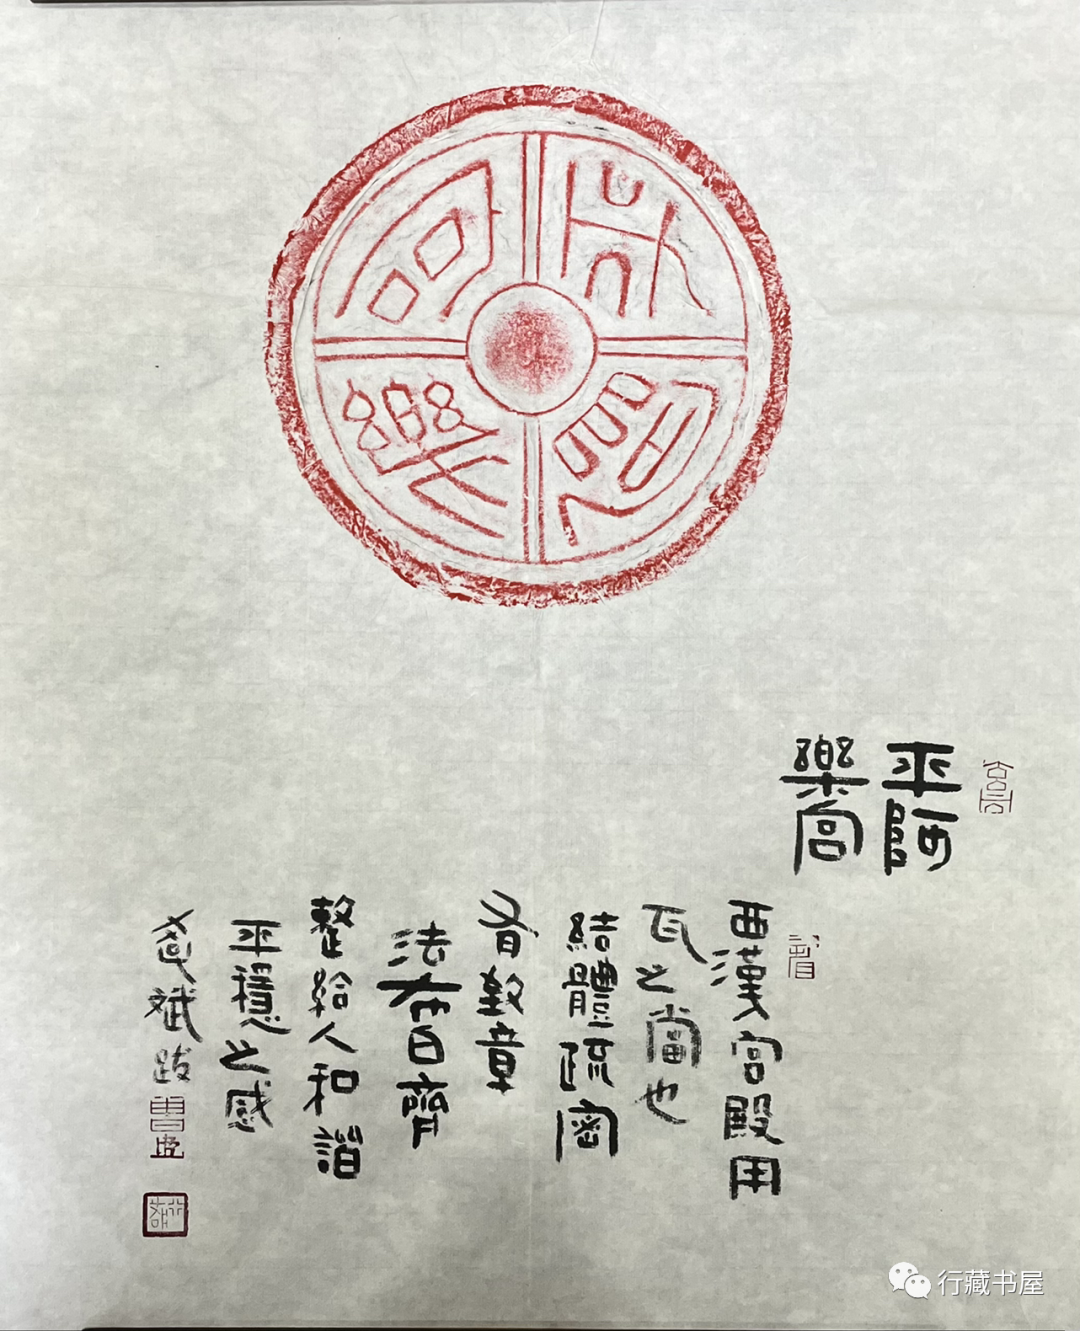 平阿樂宮
平阿
樂宮
西漢宮殿用
瓦之當也
結體疏密
有致章
法布白齊
整給人和諧
平穩之感
斌跋
行藏书屋